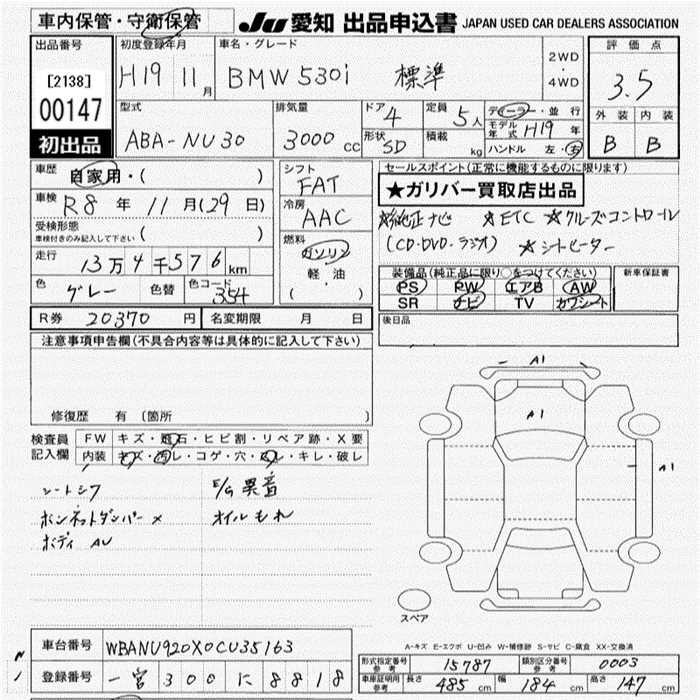 車内保管・守衛保管 JU 愛知 出品申込書 JAPAN USED CAR DEALERS ASSOCIATION
出品番号
[2138]
00147
初出品
初度登録年月
H19 11月
車名・グレード
BMW 530i 標準
2WD
・
4WD
評価点
3.5
外装 内装
B B
型式
ABA-NU30
排気量
3000cc
ドア 4
形状 SD
定員 5人
積載 kg
ディーラー・並行
モデル年式 H19 年
ハンドル 左・右
車歴
自家用・( )
車検
R8年 11月(29日)
受検形態
車検付きのみ記入して下さい ( )
走行
13万4千576km
色 グレー 色替 色コード 354
シフト
FAT
冷房
AAC
燃料
ガソリン
軽・油
( )
セールスポイント(正常に機能するものに限ります)
★ガリバー買取店出品
☆純正ナビ ☆ETC ☆クルーズコントロール
(CD・DVD・ラジオ) ☆シートヒーター
装備品(純正品に限り○をつけてください)
PS PW エアB AW
SR ナビ TV カワシート
新車保証書
後日品
R券 20370円 名変期限 月 日
注意事項申告欄(不具合内容等は具体的に記入して下さい)
修復歴 有 (箇所 )
検査員
記入欄
FW キズ・飛石・ヒビ割・リペア跡・X要
内装 キズ・汚レ・コゲ・穴・スレ・キレ・破レ
シートシワ E/G異音
ボンネットダンパー × オイルもれ
ボディ AU
A1
A1
A1
スペア
A-キズ E-エクボ U-凹み W-補修跡 S-サビ C-腐食 XX-交換済
車台番号 WBANU920X0CU35163
登録番号 一宮300に8818
形式指定番号 参考 15787 類別区分番号 参考 0003
車庫証明用 参考 長さ 485cm 幅 184cm 高さ 147cm